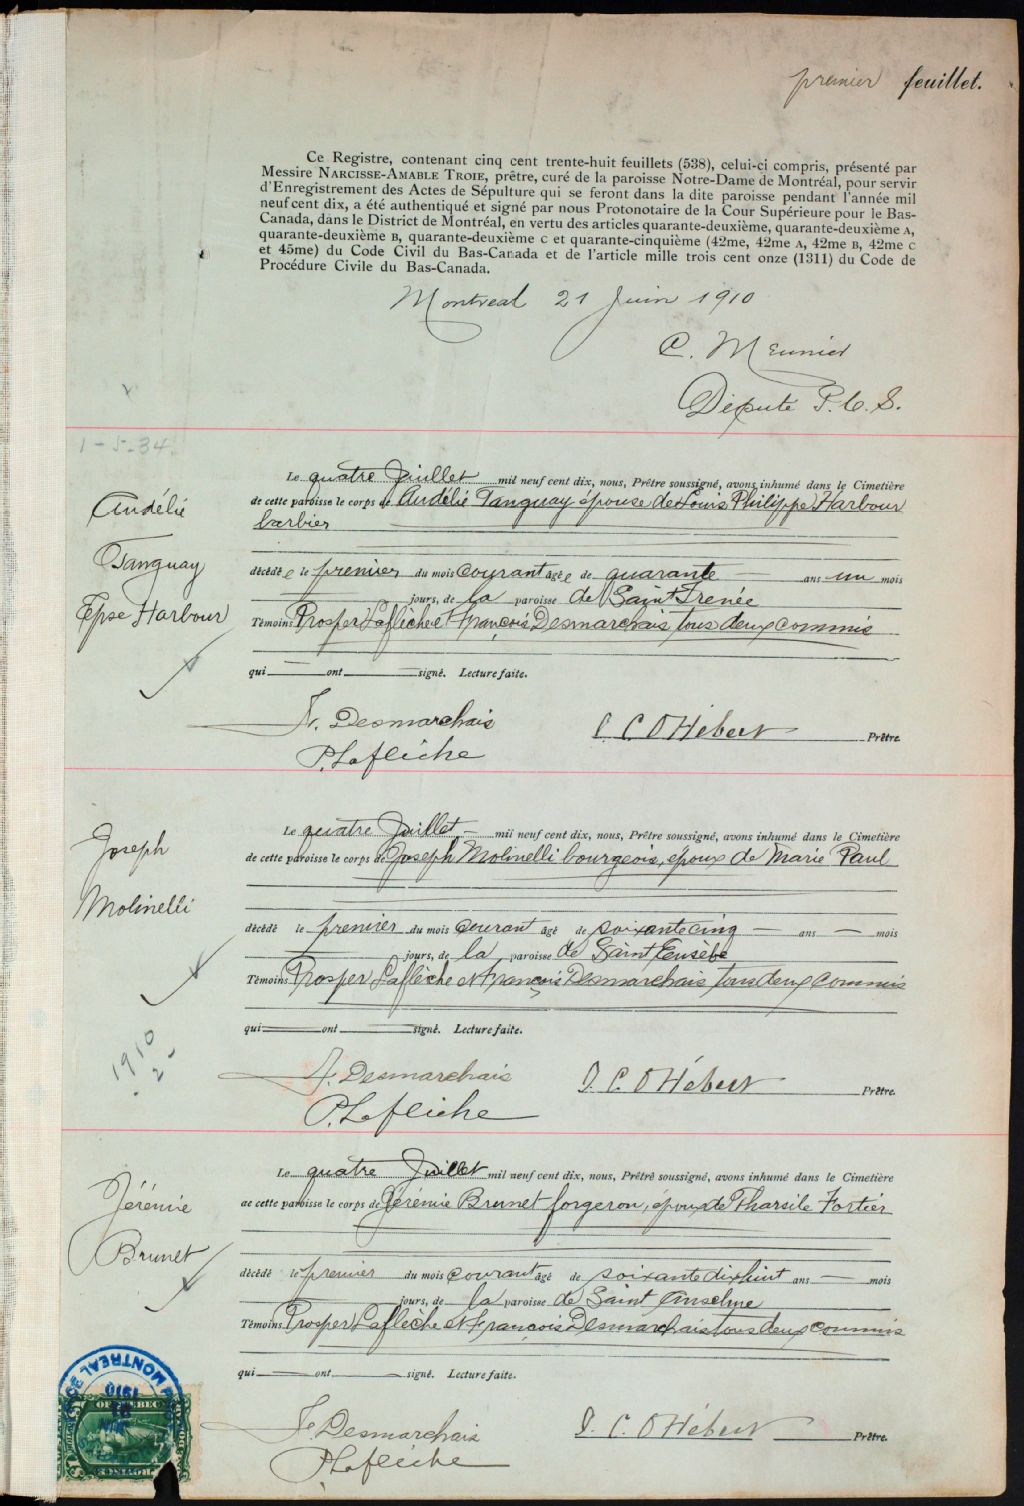 premier feuillet.
Ce Registre, contenant cinq cent trente-huit feuillets (538), celui-ci compris, présenté par
Messire NARCISSE-AMABLE TROIE, prêtre, curé de la paroisse Notre-Dame de Montréal, pour servir
d'Enregistrement des Actes de Sépulture qui se feront dans la dite paroisse pendant l'année mil
neuf cent dix, a été authentiqué et signé par nous Protonotaire de la Cour Supérieure pour le Bas-
Canada, dans le District de Montréal, en vertu des articles quarante-deuxième, quarante-deuxième A,
quarante-deuxième B, quarante-deuxième C et quarante-cinquième (42me, 42me A, 42me B, 42me C
et 45me) du Code Civil du Bas-Canada et de l'article mille trois cent onze (1311) du Code de
Procédure Civile du Bas-Canada.
Montreal 21 Juin 1910
C. Meunier
Député P. C. S.
1-5-34.
Audélié
Tanguay
Epse Harbour
Le quatre Juillet mil neuf cent dix, nous, Prêtre soussigné, avons inhumé dans le Cimetière
de cette paroisse le corps de Audélié Tanguay épouse de Louis Philippe Harbour
barbier
décédée le premier du mois courant âgée de quarante ans un mois
jours, de la paroisse de Saint Irenée
Témoins Prosper Laflèche et François Desmarchais tous deux commis
qui ont signé. Lecture faite.
F. Desmarchais
P. Laflèche
J. C. O Hébert Prêtre.
Joseph
Molinelli
1910
2
Le quatre Juillet mil neuf cent dix, nous, Prêtre soussigné, avons inhumé dans le Cimetière
de cette paroisse le corps de Joseph Molinelli bourgeois, époux de Marie Paul
décédé le premier du mois courant âgé de soixante cinq ans mois
jours, de la paroisse de Saint Eusèbe
Témoins Prosper Laflèche et François Desmarchais tous deux commis
qui ont signé. Lecture faite.
F. Desmarchais
P. Laflèche
J. C. O Hébert Prêtre.
Jérémie
Brunet
Le quatre Juillet mil neuf cent dix, nous, Prêtre soussigné, avons inhumé dans le Cimetière
de cette paroisse le corps de Jérémie Brunet forgeron, époux de Tharsile Fortier
décédé le premier du mois courant âgé de soixante dix huit ans mois
jours, de la paroisse de Saint Anselme
Témoins Prosper Laflèche et François Desmarchais tous deux commis
qui ont signé. Lecture faite.
F. Desmarchais
P. Laflèche
J. C. O Hébert Prêtre.
MONTREAL
1910
21
JUIN
OF QUEBEC